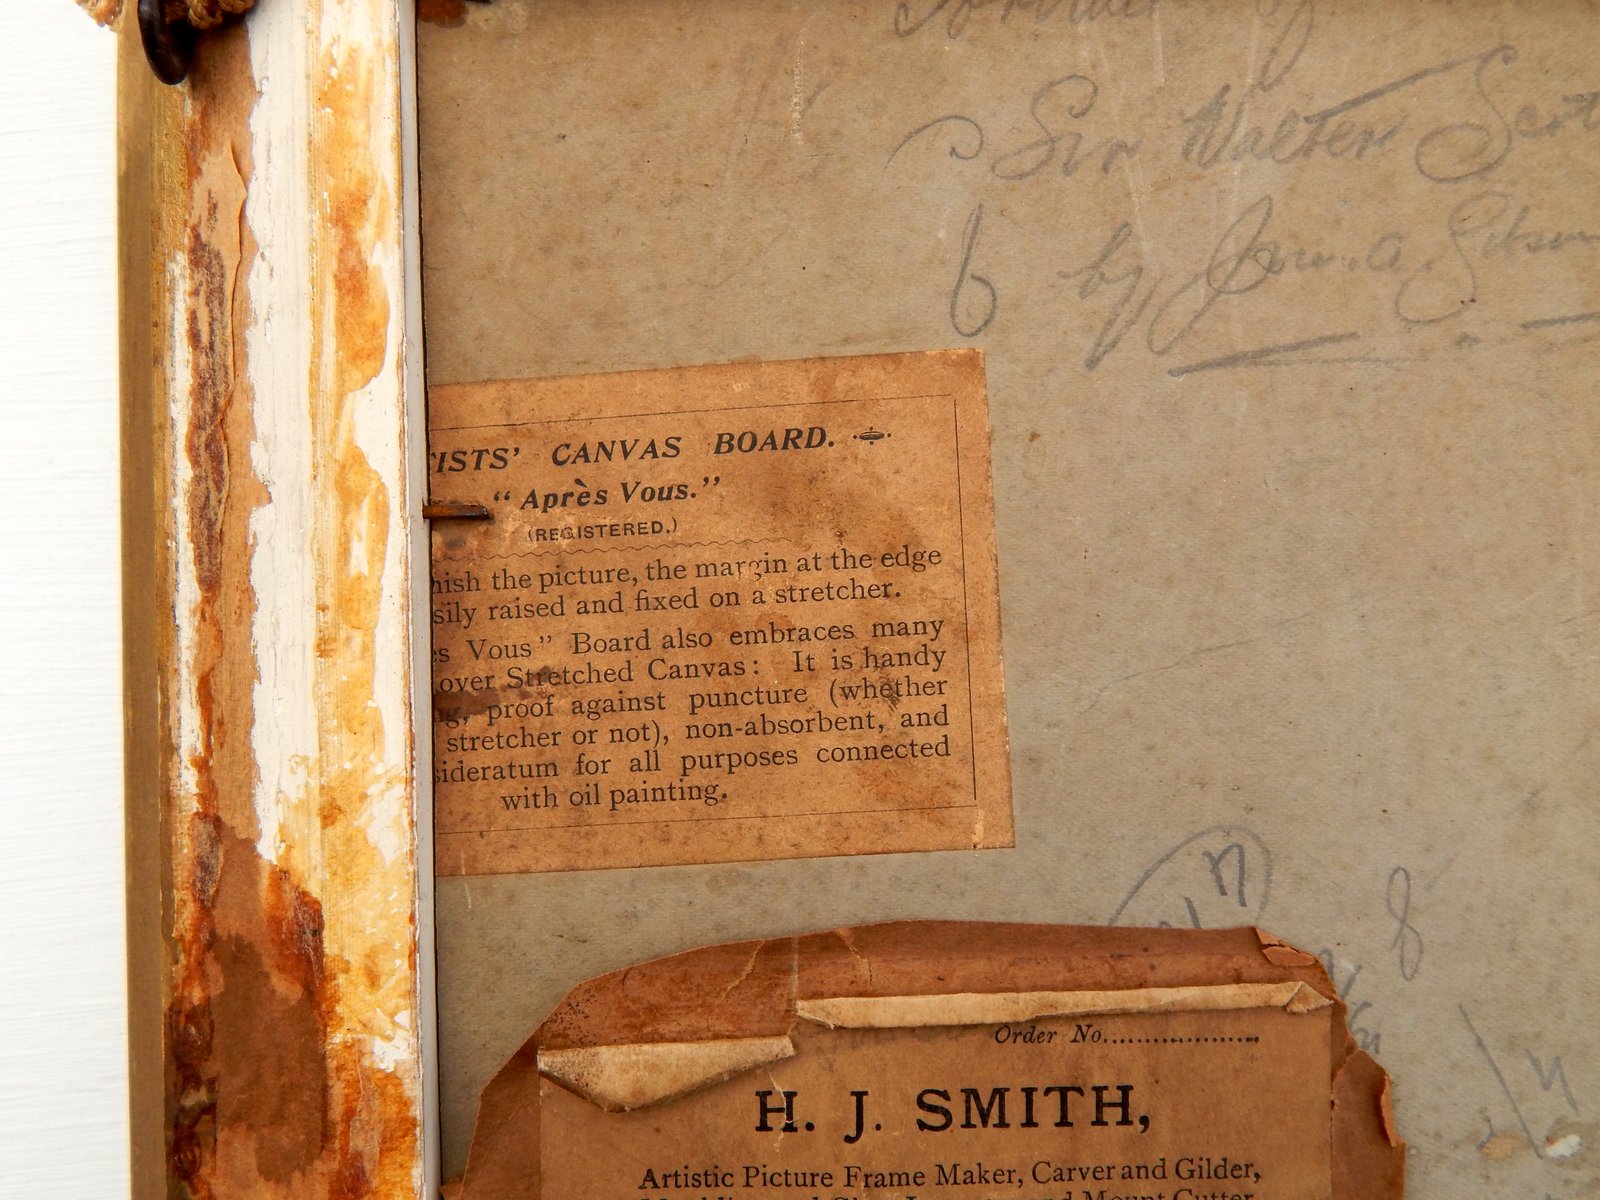 Sir Walter Scott
by
ISTS' CANVAS BOARD.
"Après Vous."
(REGISTERED.)
nish the picture, the margin at the edge
sily raised and fixed on a stretcher.
s Vous" Board also embraces many
over Stretched Canvas: It is handy
ng, proof against puncture (whether
stretcher or not), non-absorbent, and
sideratum for all purposes connected
with oil painting.
8
Order No.
H. J. SMITH,
Artistic Picture Frame Maker, Carver and Gilder,
and Mount Cutter